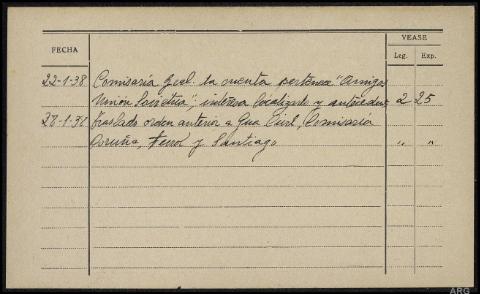 VEASE
FECHA
Leg. Exp.
22-1-38 Comisaría Gral. la cuenta pertenece "Amigos
Unión Sovietica"; interesa localizarle y antecedentes 2 25
28-1-38 Traslado orden anterior a Gua Civil, Comisaría
Coruña, Ferrol y Santiago " "
ARG